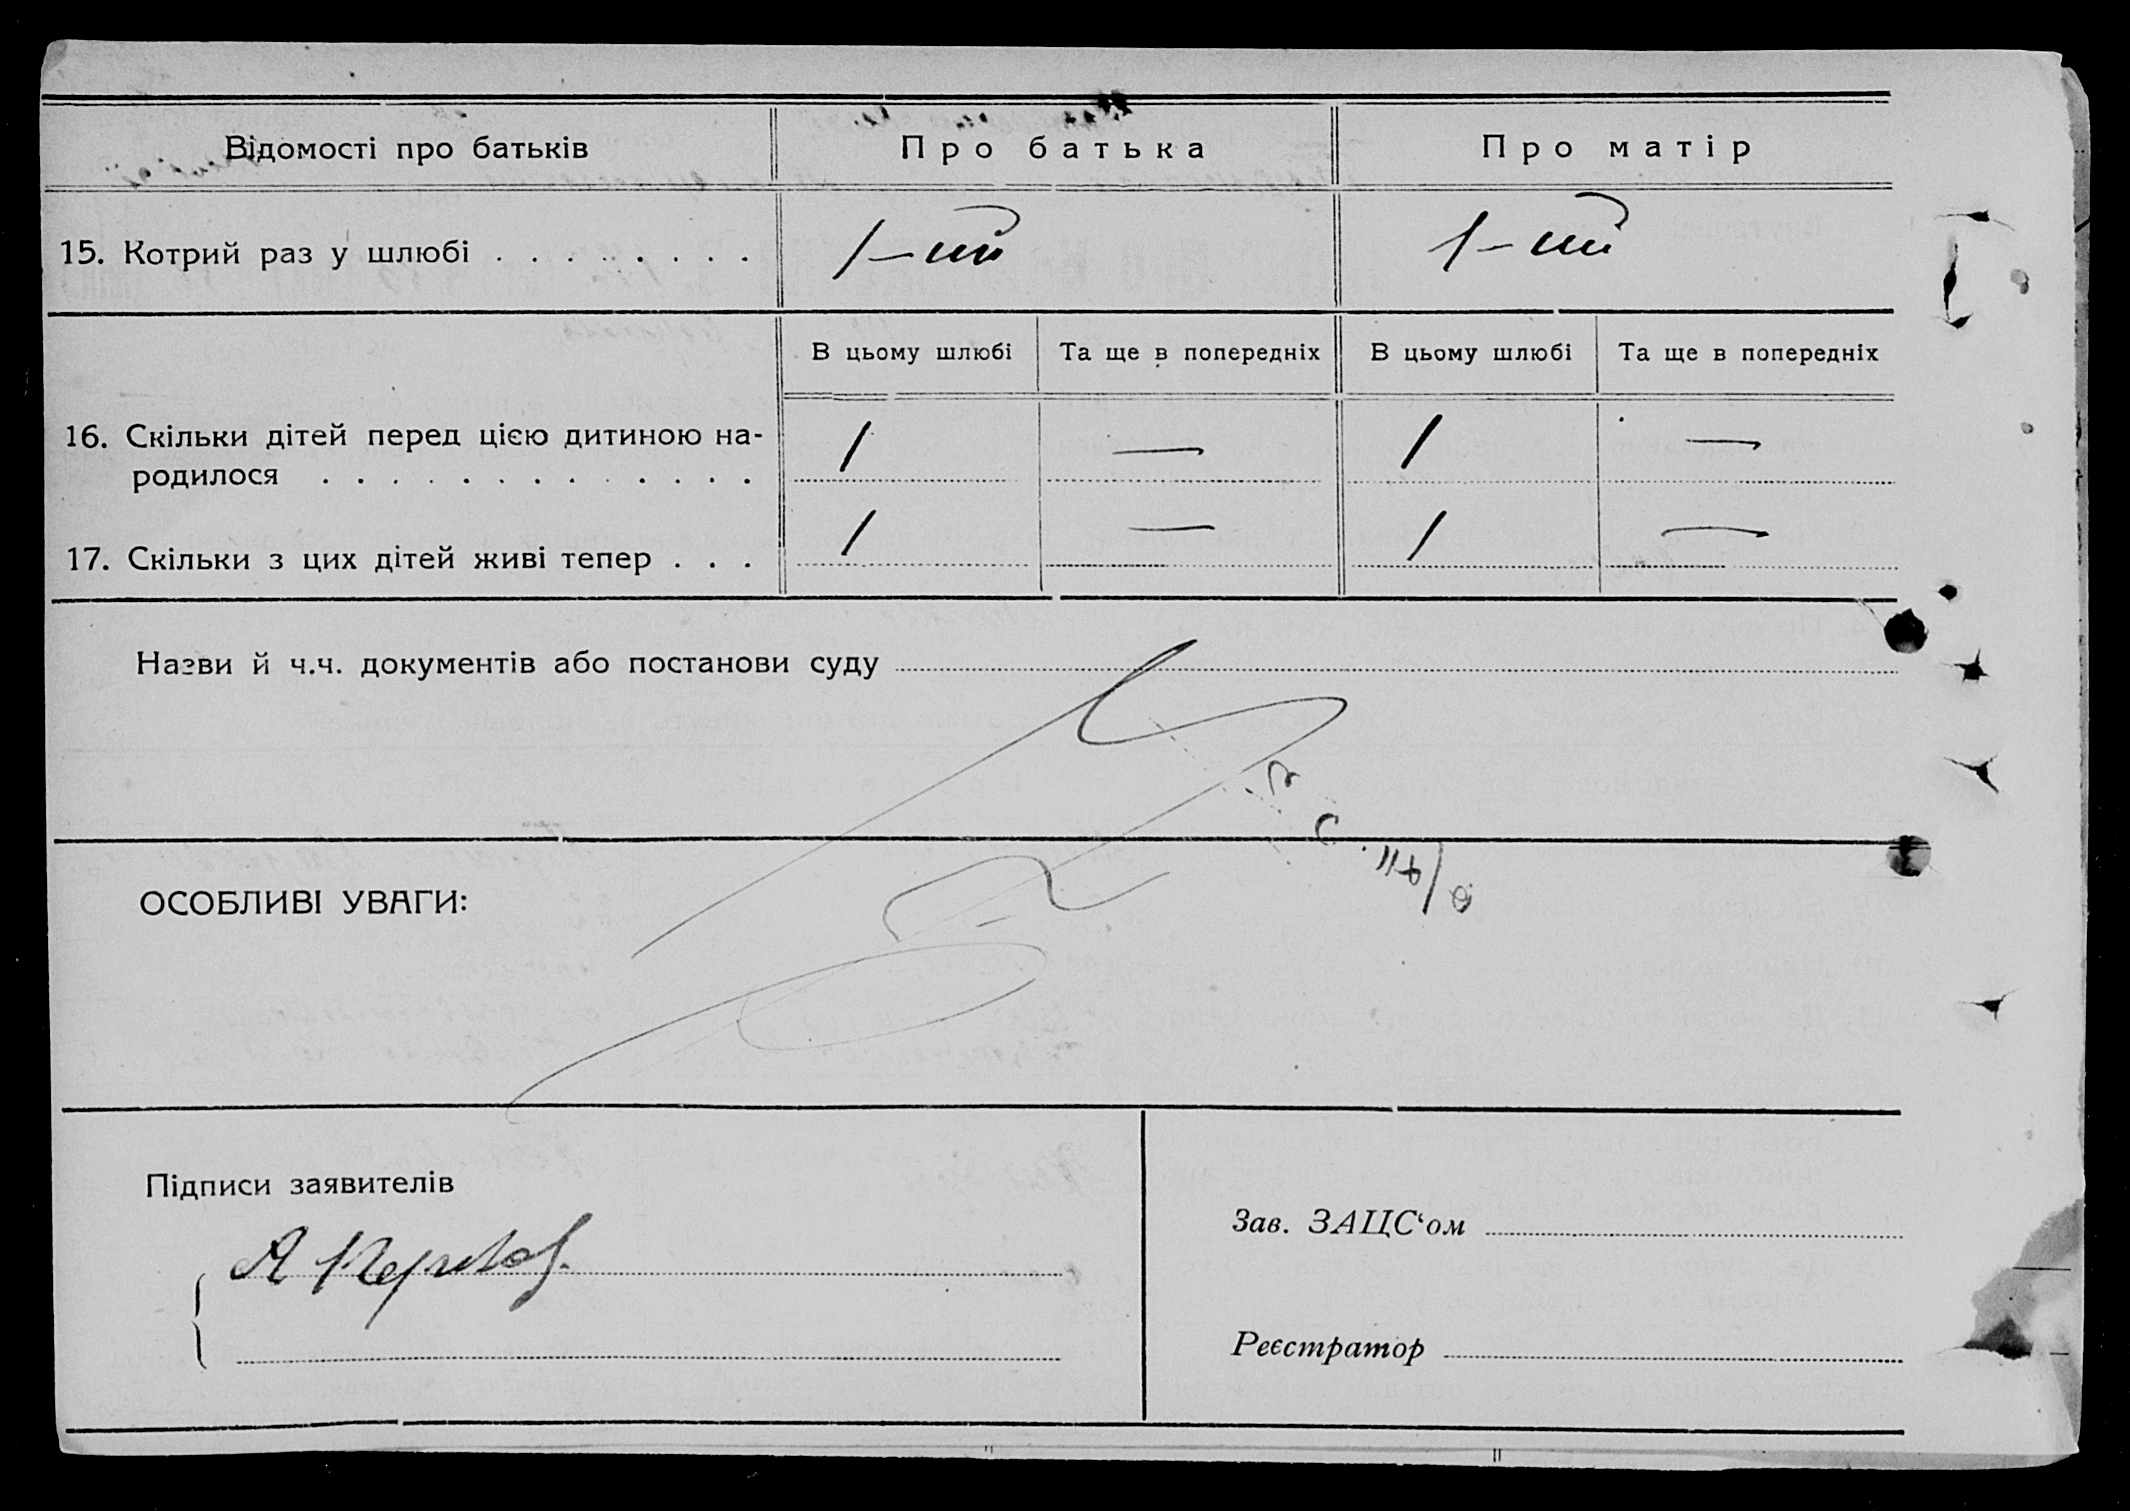 Відомості про батьків Про батька Про матір
15. Котрий раз у шлюбі . . . . . . . . 1-ий 1-ий
В цьому шлюбі Та ще в попередніх В цьому шлюбі Та ще в попередніх
16. Скільки дітей перед цією дитиною на- 1 — 1 —
родилося . . . . . . . . . . . . .
17. Скільки з цих дітей живі тепер . . . 1 — 1 —
Назви й ч.ч. документів або постанови суду
ОСОБЛИВІ УВАГИ:
Підписи заявителів
Зав. ЗАЦС‘ом
Реєстратор